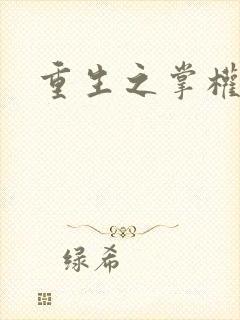 重生之掌權
绿希